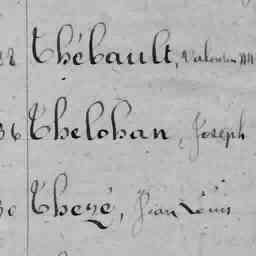 Thébault, Valentin
36 Thelohan, Joseph
Thezé, Jean Louis